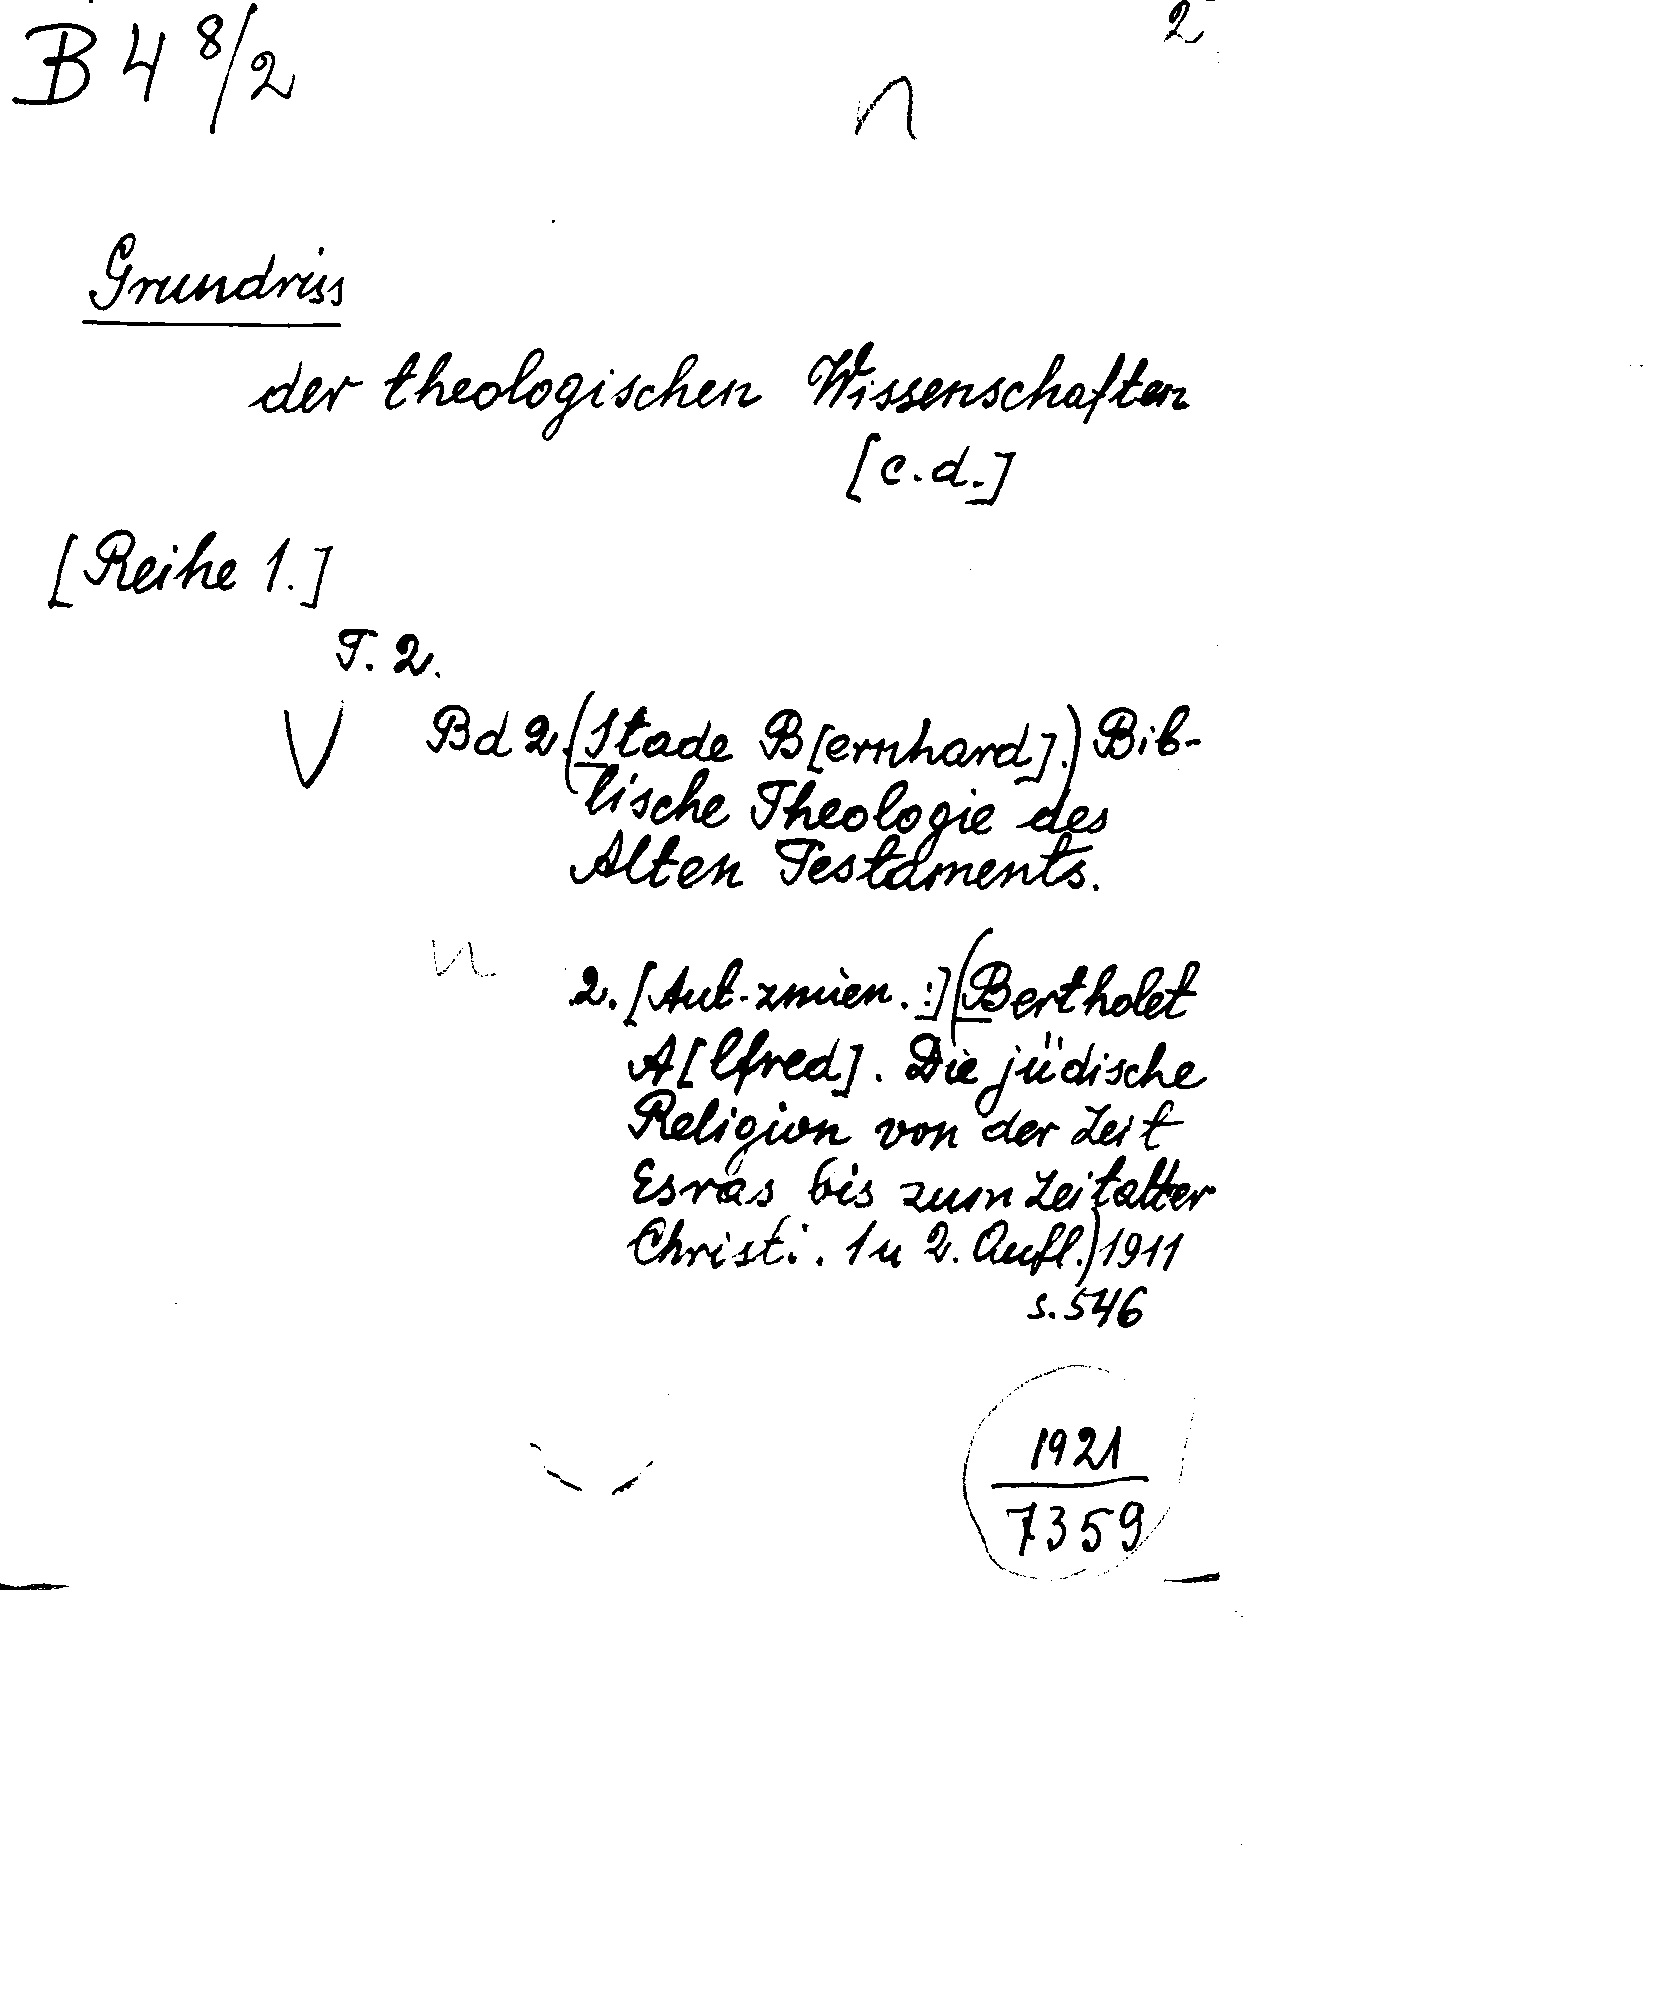 B 4 8/2
2
n
Grundriss
der theologischen Wissenschaften
[c.d.]
[Reihe 1.]
T. 2.
Bd 2 (Stade B[ernhard].) Bib-
lische Theologie des
Alten Testaments.
2. [Aut. zmien. :] (Bertholet
A[lfred]. Die jüdische
Religion von der Zeit
Esras bis zum Zeitalter
Christi. 1 u 2. Aufl.) 1911
s. 546
1921
7359